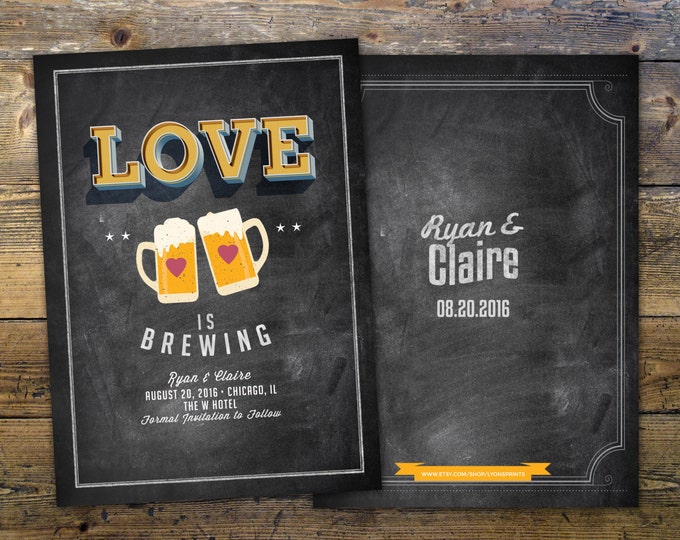 LOVE
IS
BREWING
Ryan & Claire
AUGUST 20, 2016 • CHICAGO, IL
THE W HOTEL
Formal Invitation to Follow
Ryan &
Claire
08.20.2016
WWW.ETSY.COM/SHOP/LYONSPRINTS